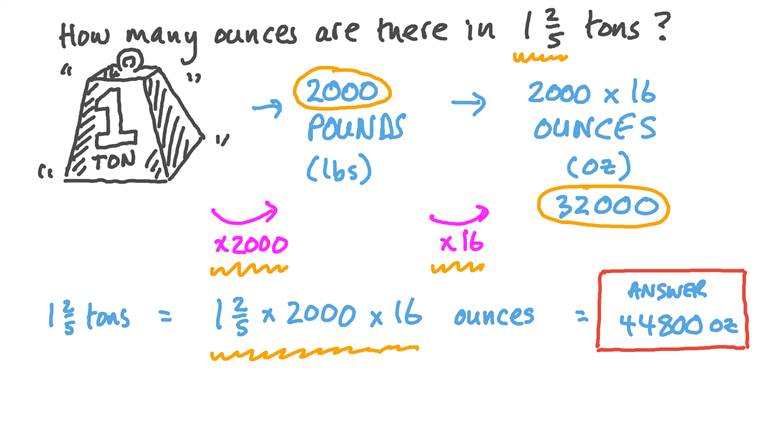 How many ounces are there in 1 2/5 tons?
1
TON
→ 2000 → 2000 × 16
POUNDS OUNCES
(lbs) (oz)
32000
×2000 ×16
1 2/5 tons = 1 2/5 × 2000 × 16 ounces =
ANSWER
44800 oz